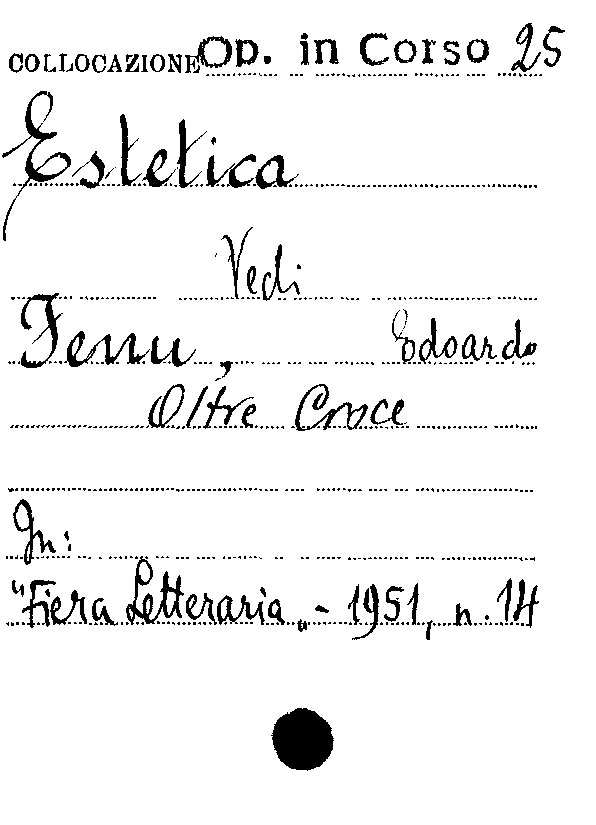 COLLOCAZIONE Op. in Corso 25
Estetica
Vedi
Fenu, Edoardo
Oltre Croce
In:
"Fiera Letteraria„ - 1951, n. 14